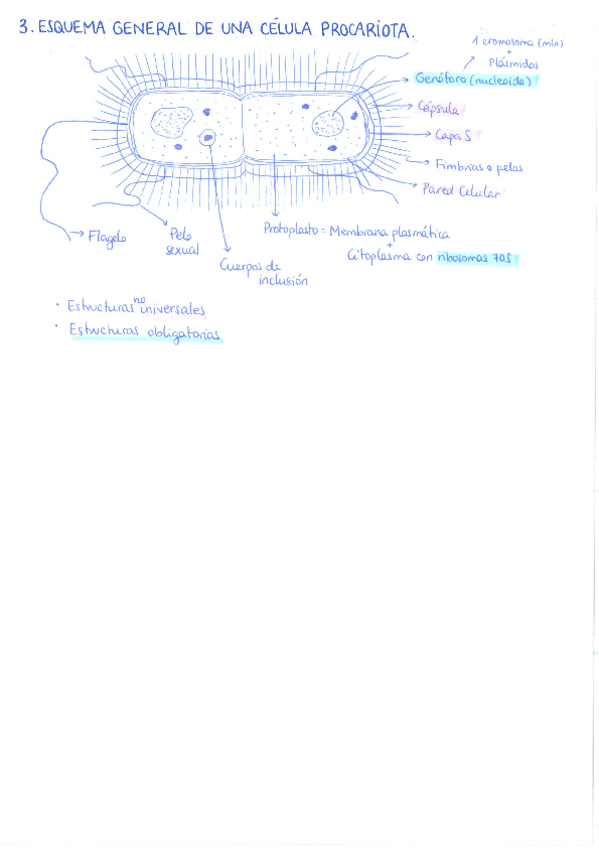 3. ESQUEMA GENERAL DE UNA CÉLULA PROCARIOTA.
1 cromosoma (mín)
+
Plásmidos
Genóforo (nucleoide)
Cápsula
Capa S
Fimbrias o pelos
Pared Celular
Protoplasto = Membrana plasmática
+
Citoplasma con ribosomas 70S
Flagelo
Pelo
sexual
Cuerpos de
inclusión
· Estructuras no universales
· Estructuras obligatorias